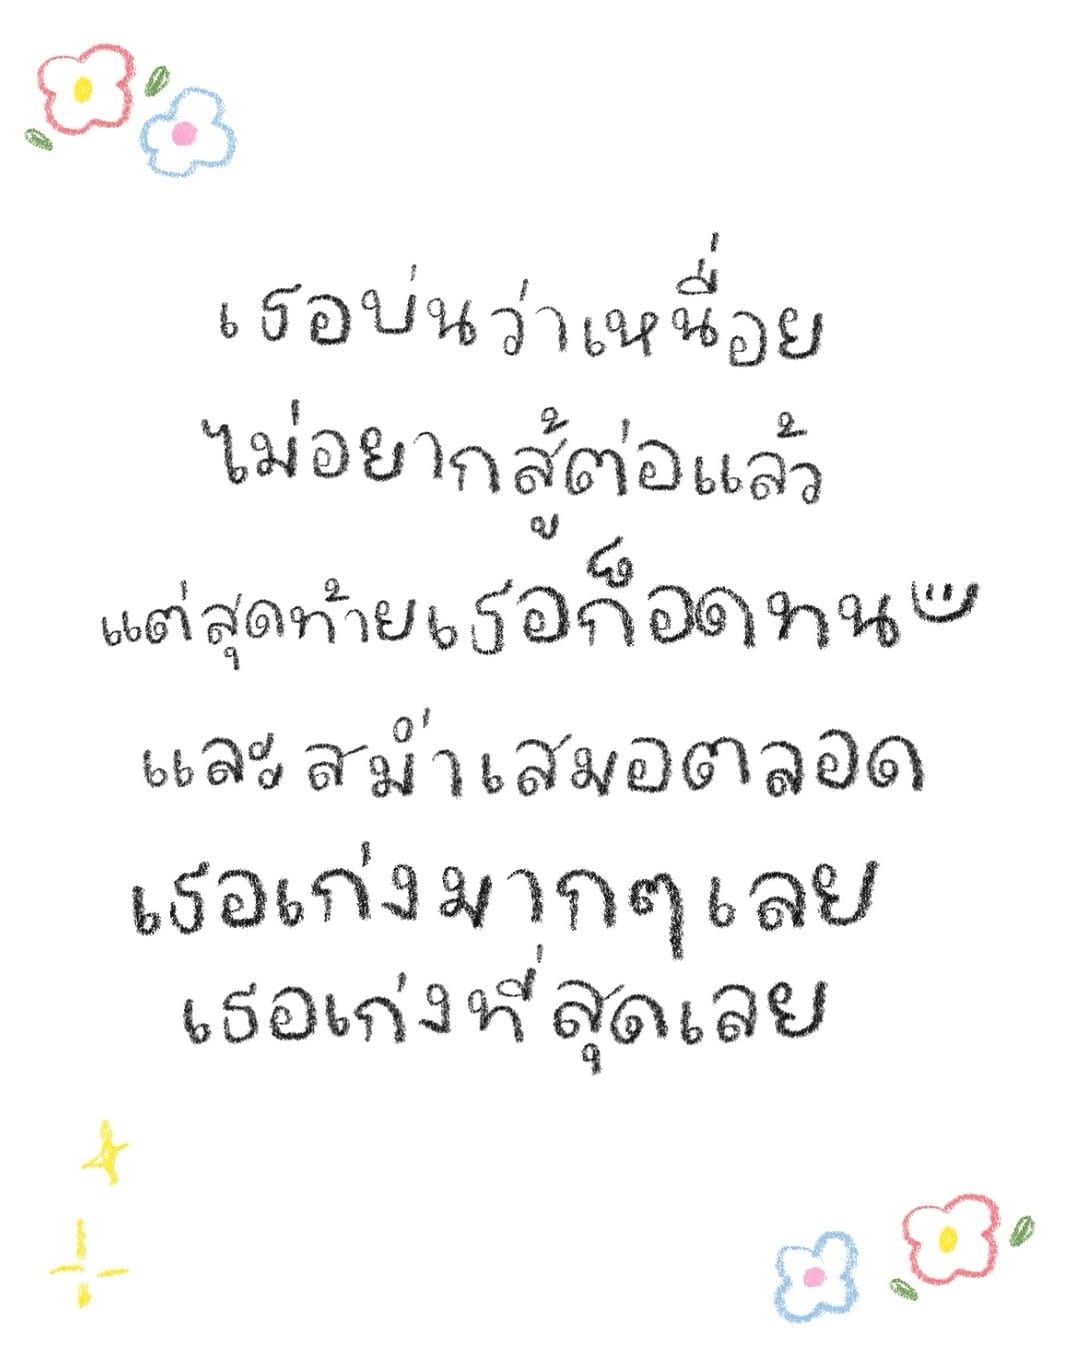 เธอบ่นว่าเหนื่อย
ไม่อยากสู้ต่อแล้ว
แต่สุดท้ายเธอก็อดทน
และสม่ำเสมอตลอด
เธอเก่งมากๆเลย
เธอเก่งที่สุดเลย